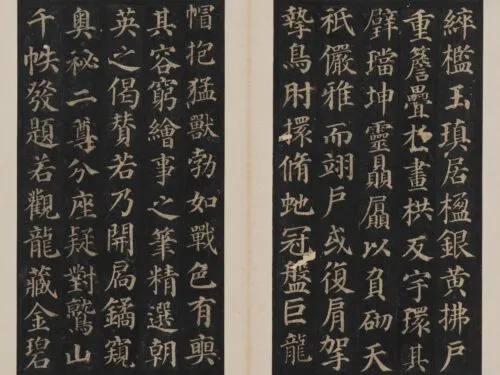 綷檻玉瑱居楹銀黃拂戶
重簷疊於畫栱反宇環其
璧璫坤靈贔屭以負砌天
祇儼雅而翊戶或復肩拏
摯鳥肘擐脩虵冠盤巨龍
帽抱猛獸勃如戰色有奭
其容窮繪事之筆精選朝
英之偈贊若乃開扃鐍窺
奧祕二尊分座疑對鷲山
千帙發題若觀龍藏金碧